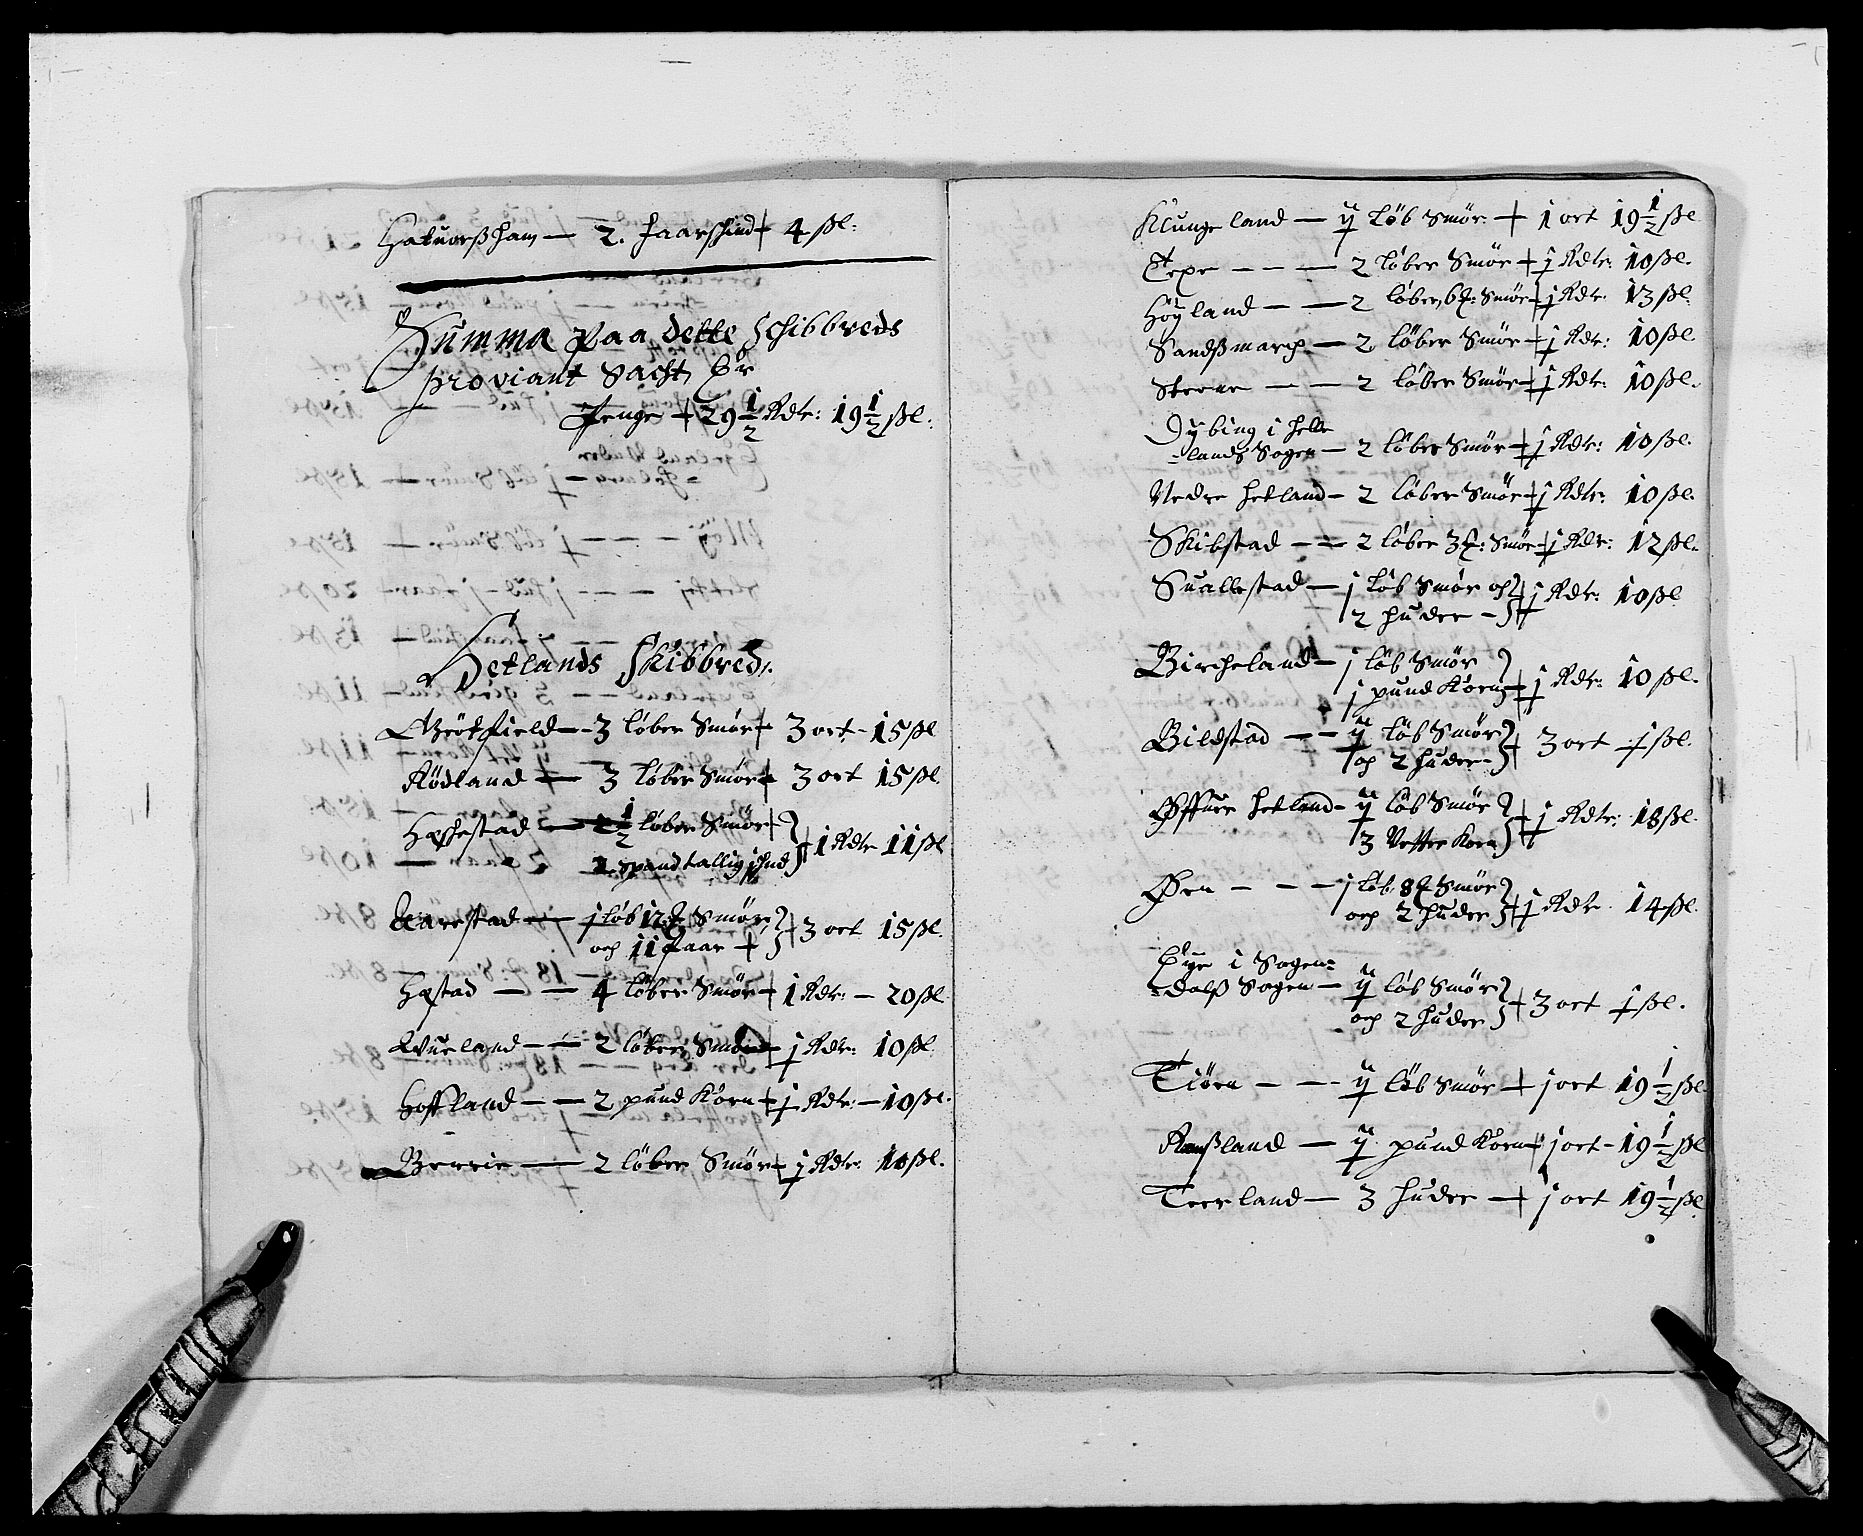 Hatuorßham — 2. faarskind + 4 ßl:
Summa paa dette Schibbreds
proviant Sacht Er
Penge + 29 1/2 Rdr: 19 1/2 ßl:
Hetlands Skibbred:
Grötfield — 3 löber Smör + 3 ort - 15 ßl
Rödland — 3 löber Smör + 3 ort 15 ßl
Hæstad — 1/2 löber Smör
1 spand tallig j hud + 1 Rdr 11 ßl
Aarestad — j löb 12 ℔ Smör
och 11 faar + 3 ort 15 ßl.
Hæstad — 4 löber Smör + 1 Rdr: — 20 ßl
Aueland — 2 löber Smör + j Rdr: 10 ßl
Hoffland — 2 pund Körn + j Rdr: — 10 ßl.
Berrie — 2 löber Smör + j Rdr: 10 ßl.
Klungeland — ÿ löb Smör + 1 ort 19 1/2 ßl
— 2 löber Smör + j Rdr: 10 ßl.
Höyland — 2 löber, 6 ℔: Smör + j Rdr: 13 ßl.
Sandßmarch — 2 löber Smör + j Rdr: 10 ßl.
Steene — 2 löber Smör + j Rdr: 10 ßl.
Dybing i Helle
-lands Sogen — 2 löber Smör + j Rdr: 10 ßl.
Nedre Hetland — 2 löber Smör + j Rdr: 10 ßl.
Skibstad — 2 löber 3 ℔: Smör + j Rdr: 12 ßl.
Suallestad — j löb Smör och
2 huder — + j Rdr: 10 ßl
Bircheland — j löb Smör
j pund Korn + j Rdr: 10 ßl.
Bilstad — ÿ löb Smör
och 2 huder — + 3 ort j ßl.
Øffuer Hetland — ÿ löb Smör
3 Vetter Korn + j Rdr: 18 ßl.
Øen — j löb 8 ℔ Smör
och 2 huder + j Rdr 14 ßl.
Eye i Sogen=
=dalß Sogen — ÿ löb Smör
och 2 huder + 3 ort j ßl.
Tiörn — ÿ löb Smör + j ort 19 1/2 ßl
Ramßland — ÿ pund Korn + j ort - 19 1/2 ßl
Teerland — 3 huder — + j ort 19 1/2 ßl.